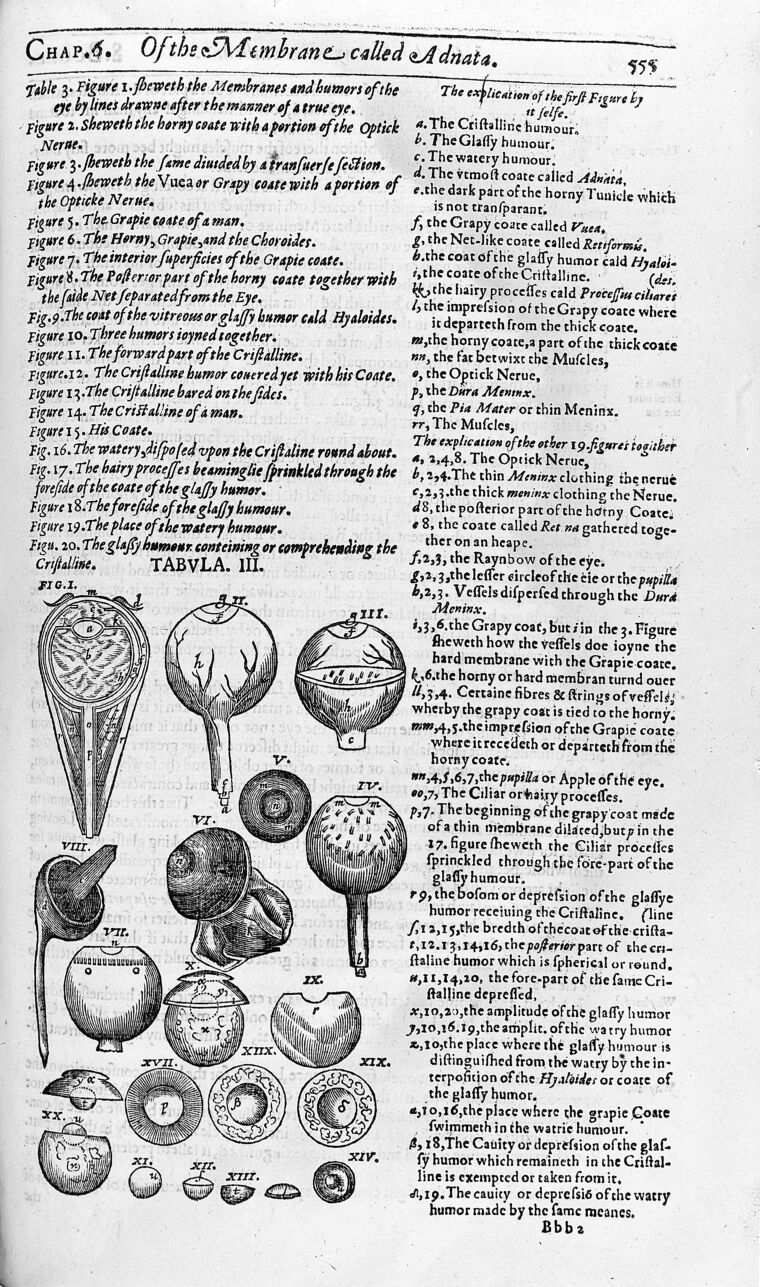 CHAP.6. Of the Membrane called Adnata. 555
Table 3. Figure 1. ſheweth the Membranes and humors of the
eye by lines drawne after the manner of a true eye.
Figure 2. Sheweth the horny coate with a portion of the Optick
Nerue.
Figure 3. ſheweth the ſame diuided by a tranſuerſe ſection.
Figure 4. ſheweth the Vuea or Grapy coate with a portion of
the Opticke Nerue.
Figure 5. The Grapie coate of a man.
Figure 6. The Horny, Grapie, and the Choroides.
Figure 7. The interior ſuperficies of the Grapie coate.
Figure 8. The Poſterior part of the horny coate together with
the ſaide Net ſeparated from the Eye.
Fig. 9. The coat of the vitreous or glaſſy humor cald Hyaloides.
Figure 10. Three humors ioyned together.
Figure 11. The forward part of the Criſtalline.
Figure. 12. The Criſtalline humor couered yet with his Coate.
Figure 13. The Criſtalline bared on the ſides.
Figure 14. The Criſtalline of a man.
Figure 15. His Coate.
Fig. 16. The watery, diſpoſed vpon the Criſtaline round about.
Fig. 17. The hairy proceſſes beaminglie ſprinkled through the
foreſide of the coate of the glaſſy humor.
Figure 18. The foreſide of the glaſſy humour.
Figure 19. The place of the watery humour.
Figu. 20. The glaſſy humour conteining or comprehending the
Criſtalline.
TABVLA. III.
FIG.I.
II.
III.
V.
IV.
VI.
VIII.
VII.
X.
IX.
XIIX.
XVII.
XIX.
XX.
XI.
XII.
XIII.
XIV.
The explication of the firſt Figure by
it ſelfe.
a. The Criſtalline humour.
b. The Glaſſy humour.
c. The watery humour.
d. The vtmoſt coate called Adnata,
e. the dark part of the horny Tunicle which
is not tranſparant.
f, the Grapy coate called Vuea.
g, the Net-like coate called Retiformis.
h. the coat of the glaſſy humor cald Hyaloi-
i, the coate of the Criſtalline. (des.
kk, the hairy proceſſes cald Proceſſus ciliares
l, the impreſsion of the Grapy coate where
it departeth from the thick coate.
m, the horny coate, a part of the thick coate
nn, the fat betwixt the Muſcles,
o, the Optick Nerue,
p, the Dura Meninx.
q, the Pia Mater or thin Meninx.
rr, The Muſcles,
The explication of the other 19. figures togither
a, 2,4,8. The Optick Nerue,
b, 2,4. The thin Meninx clothing the nerue
c, 2,3. the thick meninx clothing the Nerue.
d 8, the poſterior part of the horny Coate.
e 8, the coate called Ret na gathered toge-
ther on an heape.
f, 2,3, the Raynbow of the eye.
g, 2,3, the leſſer circle of the eie or the pupilla
h, 2,3. Veſſels diſperſed through the Dura
Meninx.
i, 3,6. the Grapy coat, but i in the 3. Figure
ſheweth how the veſſels doe ioyne the
hard membrane with the Grapie coate.
k, 6. the horny or hard membran turnd ouer
ll, 3,4. Certaine fibres & ſtrings of veſſels,
wherby the grapy coat is tied to the horny.
mm, 4,5. the impreſsion of the Grapie coate
where it recedeth or departeth from the
horny coate.
nn, 4,5,6,7, the pupilla or Apple of the eye.
oo, 7, The Ciliar or hairy proceſſes.
p, 7. The beginning of the grapy coat made
of a thin membrane dilated, but p in the
17. figure ſheweth the Ciliar proceſſes
ſprinckled through the fore-part of the
glaſſy humour.
r 9, the boſom or depreſsion of the glaſſye
humor receiuing the Criſtaline. (line
ſ, 12,15, the bredth of the coat of the criſta-
t, 12.13,14,16, the poſterior part of the cri-
ſtaline humor which is ſpherical or round.
u, 11,14,20, the fore-part of the ſame Cri-
ſtalline depreſſed,
x, 10,20, the amplitude of the glaſſy humor
y, 10,16.19, the amplit. of the watry humor
z, 10, the place where the glaſſy humour is
diſtinguiſhed from the watry by the in-
terpoſition of the Hyaloides or coate of
the glaſſy humor.
α, 10,16, the place where the grapie Coate
ſwimmeth in the watrie humour.
β, 18, The Cauity or depreſsion of the glaſ-
ſy humor which remaineth in the Criſtal-
line is exempted or taken from it.
δ, 19. The cauity or depreſsiō of the watry
humor made by the ſame meanes.
Bbb 2